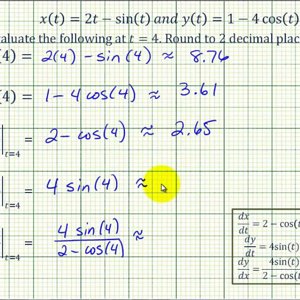 x(t) = 2t − sin(t) and y(t) = 1 − 4cos(t)
aluate the following at t = 4. Round to 2 decimal plac
(4) = 2(4) - sin(4) ≈ 8.76
(4) = 1 - 4 cos(4) ≈ 3.61
|t=4 = 2 - cos(4) ≈ 2.65
|t=4 = 4 sin(4) ≈
|t=4 = 4 sin(4) / 2 - cos(4) ≈
dx/dt = 2 − cos(t
dy/dt = 4sin(t
dy/dx = 4sin(t / 2 − cos(t